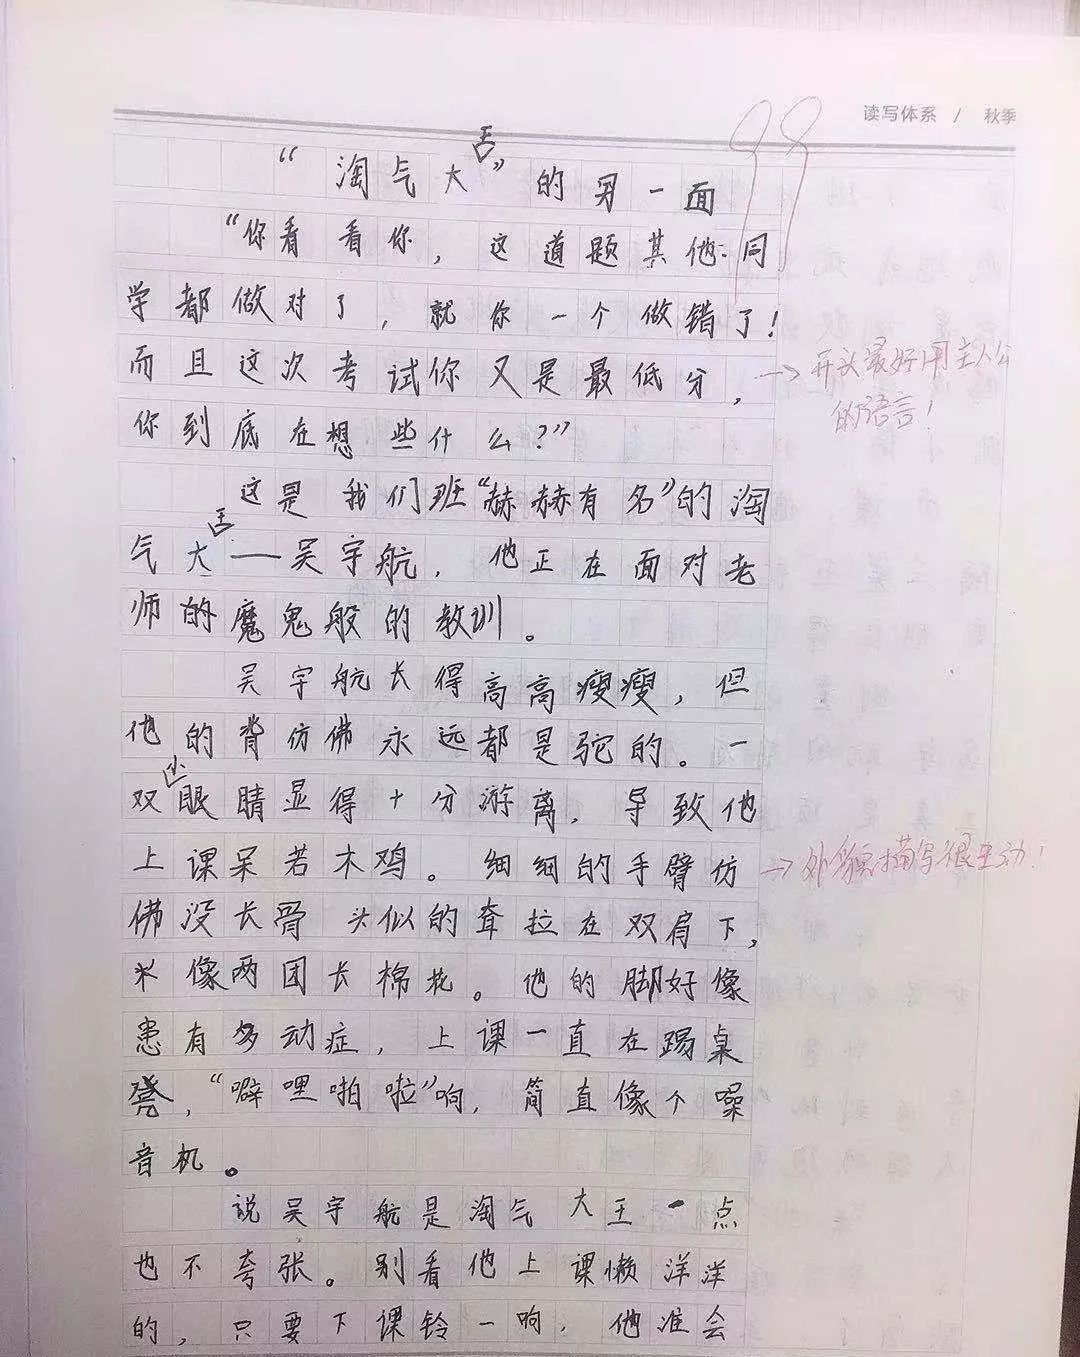 读写体系 / 秋季
99
“淘气大王”的另一面
“你看看你，这道题其他同
学都做对了，就你一个做错了！
而且这次考试你又是最低分，
→开头最好用主人公
的语言！
你到底在想些什么？”
这是我们班“赫赫有名”的淘
气大王——吴宇航，他正在面对老
师的魔鬼般的教训。
吴宇航长得高高瘦瘦，但
他的背仿佛永远都是驼的。一
双小眼睛显得十分游离，导致他
上课呆若木鸡。细细的手臂仿
→外貌描写很生动！
佛没长骨头似的耷拉在双肩下，
像两团长棉花。他的脚好像
患有多动症，上课一直在踢桌
凳，“噼哩啪啦”响，简直像个噪
音机。
说吴宇航是淘气大王一点
也不夸张。别看他上课懒洋洋
的，只要下课铃一响，他准会